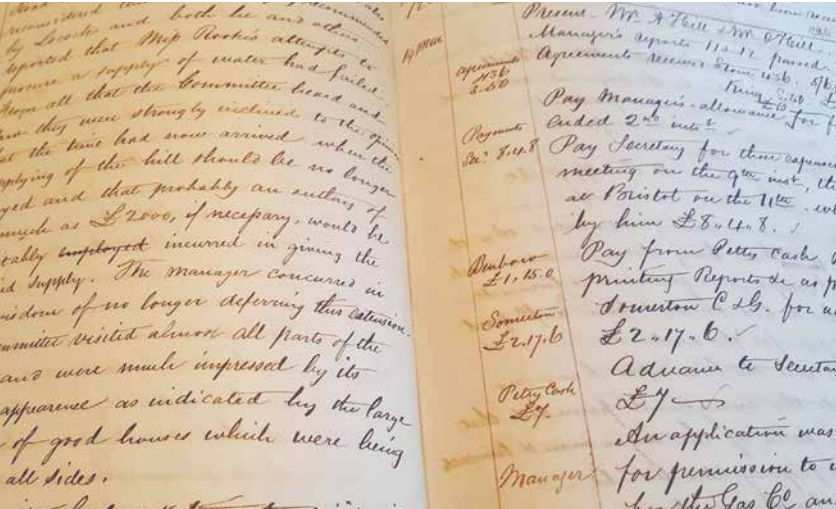 reconsidered
by Lovock and both he and others
reported that Miss Rooke's attempts to
procure a supply of water had failed.
From all that the Committee heard and
they were strongly inclined to the opinion
the time had now arrived when the
supplying of the hill should be no longer
and that probably an outlay of
much as £2000, if necessary, would be
employed incurred in giving the
supply. The manager concurred in
wisdom of no longer deferring this extension.
visited almost all parts of the
and were much impressed by its
appearence as indicated by the large
of good houses which were being
all sides.
19 Mar
Agreements
436
£.50
Payments
Sec. 8.4.8
Benbow
£1.15.0
Somerton
£2.17.6
Petty Cash
£7.
Manager
Present - Mr. A Hill & Mr. O Hill.
Manager's reports 11 & 12 passed.
Agreements received from
Pay Manager's allowance for
ended 2nd inst.
Pay Secretary for three expenses
meeting on the 9th inst,
at Bristol on the 11th
by him £8.,4.,8.
Pay from Petty Cash
printing Reports &c as
Somerton C & G. for
£2.,17.,6.
Advance to Secretary
£7
An application was
for permission to
the Gas Co and